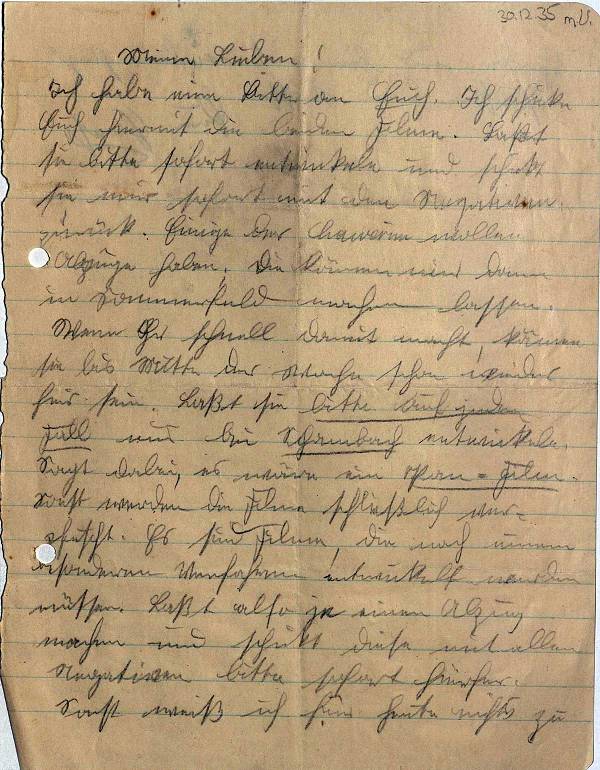 30.12.35 m.U.
Meine Lieben!
Ich habe eine Bitte an Euch. Ich schicke
Euch hiermit die beiden Filme. Laßt
sie bitte sofort entwickeln und schickt
sie mir sofort mit den Negativen
zurück. Einige der Chawerim wollen
Abzüge haben. Die können wir dann
in Sommerfeld machen lassen.
Wenn Ihr schnell damit macht, können
sie bis Mitte der Woche schon wieder
hier sein. Laßt sie bitte auf jeden
Fall nur bei Schambach entwickeln.
Sagt dabei, es wäre ein Pan=Film.
Sonst werden die Filme schließlich ver-
pfuscht. Es sind Filme, die nach einem
besonderen Verfahren entwickelt werden
müssen. Laßt also je einen Abzug
machen und schickt diese mit allen
Negativen bitte sofort hierher.
Sonst weiß ich für heute nichts zu